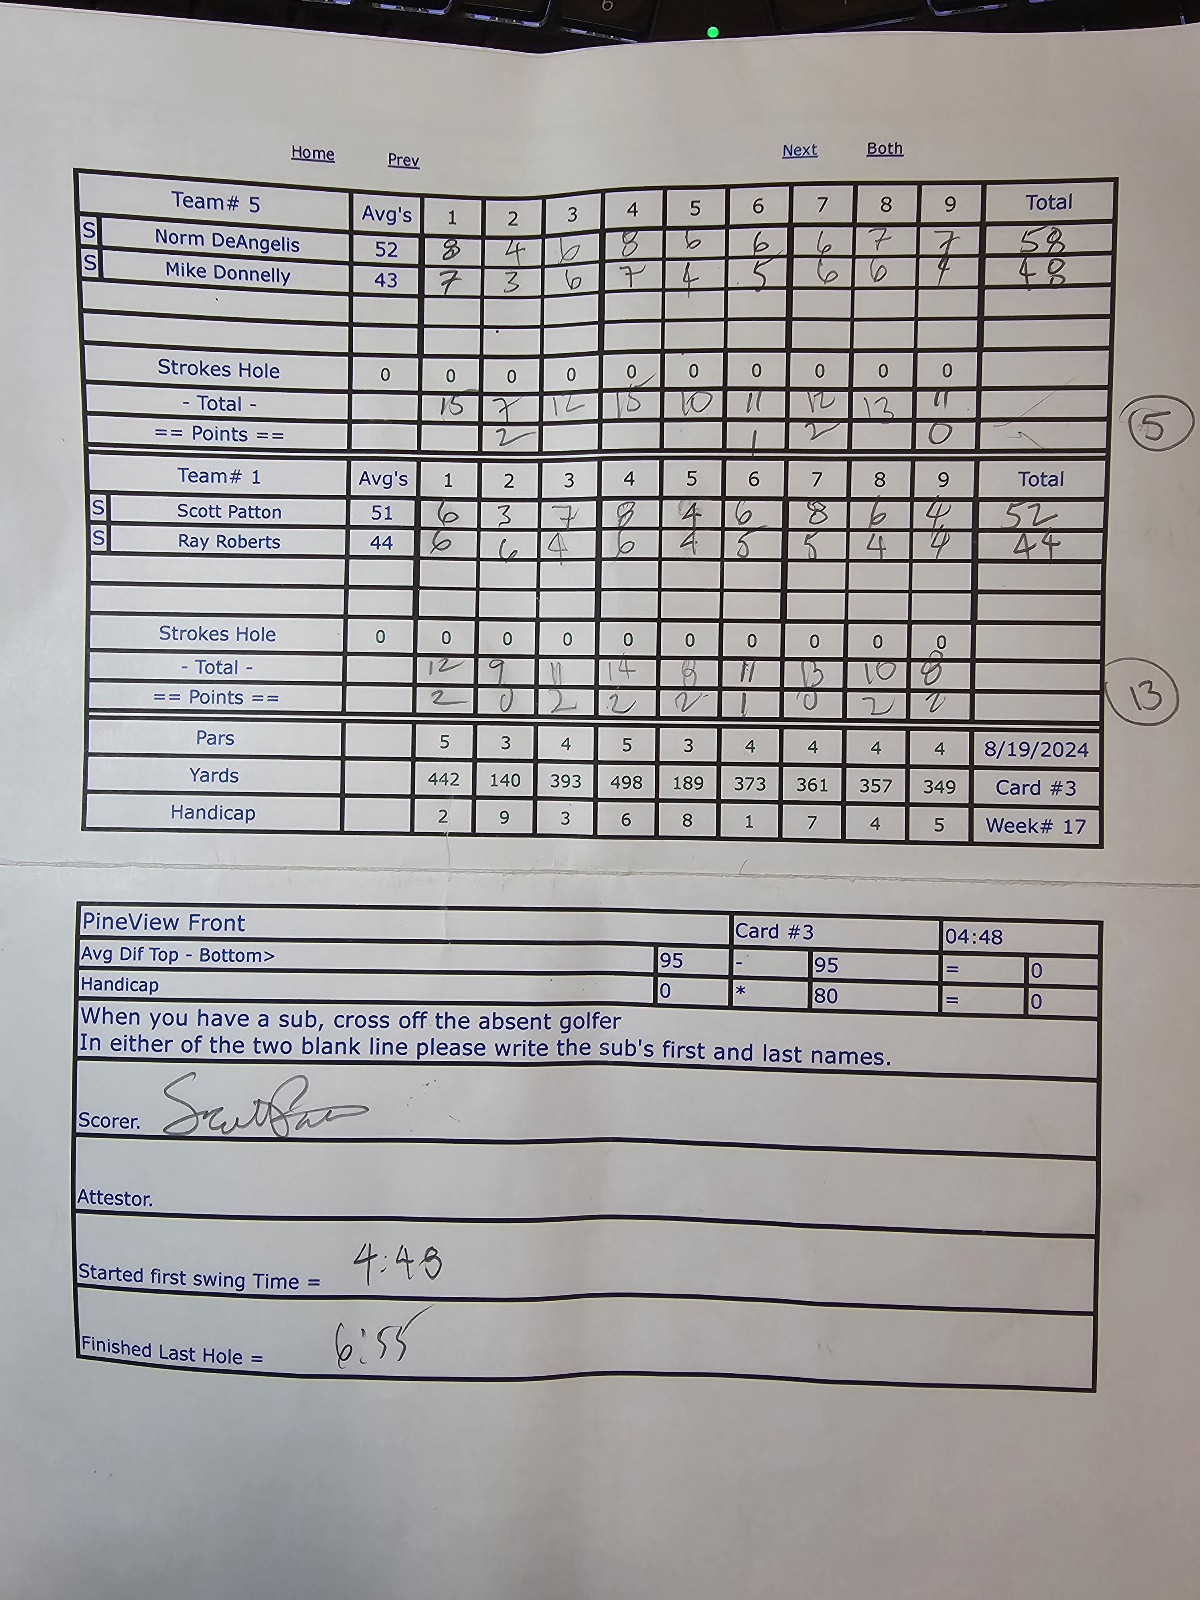 Home Prev Next Both
Team# 5 Avg's 1 2 3 4 5 6 7 8 9 Total
S Norm DeAngelis 52 8 4 6 8 6 6 6 7 7 58
S Mike Donnelly 43 7 3 6 7 4 5 6 6 4 48
Strokes Hole 0 0 0 0 0 0 0 0 0 0
- Total - 15 7 12 15 10 11 12 13 11
== Points == 2 1 2 0 5
Team# 1 Avg's 1 2 3 4 5 6 7 8 9 Total
S Scott Patton 51 6 3 7 8 4 6 8 6 4 52
S Ray Roberts 44 6 6 4 6 4 5 5 4 4 44
Strokes Hole 0 0 0 0 0 0 0 0 0 0
- Total - 12 9 11 14 8 11 13 10 8
== Points == 2 0 2 2 2 1 0 2 2 13
Pars 5 3 4 5 3 4 4 4 4 8/19/2024
Yards 442 140 393 498 189 373 361 357 349 Card #3
Handicap 2 9 3 6 8 1 7 4 5 Week# 17
PineView Front Card #3 04:48
Avg Dif Top - Bottom> 95 - 95 = 0
Handicap 0 * 80 = 0
When you have a sub, cross off the absent golfer
In either of the two blank line please write the sub's first and last names.
Scorer. Scott Patton
Attestor.
Started first swing Time = 4:48
Finished Last Hole = 6:55